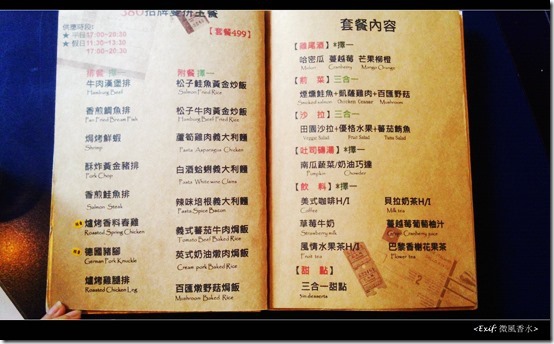 380招牌雙拼主餐
供應時段:
【套餐499】
★ 平日17:00~20:30
★ 假日11:30~13:30
17:00~20:30
排餐 擇一
附餐 擇一
牛肉漢堡排
Hamburg Beef
松子鮭魚黃金炒飯
Salmon Fried Rice
香煎鯛魚排
Pan Fried Bream Fish
松子牛肉黃金炒飯
Hamburg Beef Fried Rice
焗烤鮮蝦
Shrimp
蘆筍雞肉義大利麵
Pasta Asparagus Chicken
酥炸黃金豬排
Pork Chop
白酒蛤蜊義大利麵
Pasta White wine Clams
香煎鮭魚排
Salmon Steak
辣味培根義大利麵
Pasta Spice Bacon
爐烤香料春雞
Roasted Spring Chicken
義式蕃茄牛肉焗飯
Tomato Beef Baked Rice
德國豬腳
German Pork Knuckle
英式奶油燉肉焗飯
Cream pork Baked Rice
爐烤雞腿排
Roasted Chicken Leg
百匯燉野菇焗飯
Mushroom Baked Rice
套餐內容
【雞尾酒】*擇一
哈密瓜 蔓越莓 芒果柳橙
Melon Cranberry Mango Orange
【前菜】三合一
煙燻鮭魚+凱薩雞肉+百匯野菇
Smoked salmon Chicken Ceaser Mushroom
【沙 拉】三合一
田園沙拉+優格水果+蕃茄鮪魚
Veggie Salad Fruit Salad Tuna Salad
【吐司磚湯】*擇一
南瓜蔬菜/奶油巧達
Pumpkin Chowder
【飲 料】*擇一
美式咖啡H/I
Coffee
貝拉奶茶H/I
Milk tea
草莓牛奶
Strawberry milk
蔓越莓葡萄柚汁
Grape Cranberry juice
風情水果茶H/I
Fruit tea
巴黎香榭花果茶
Flower tea
【甜 點】
三合一甜點
<Exif: 微風香水>